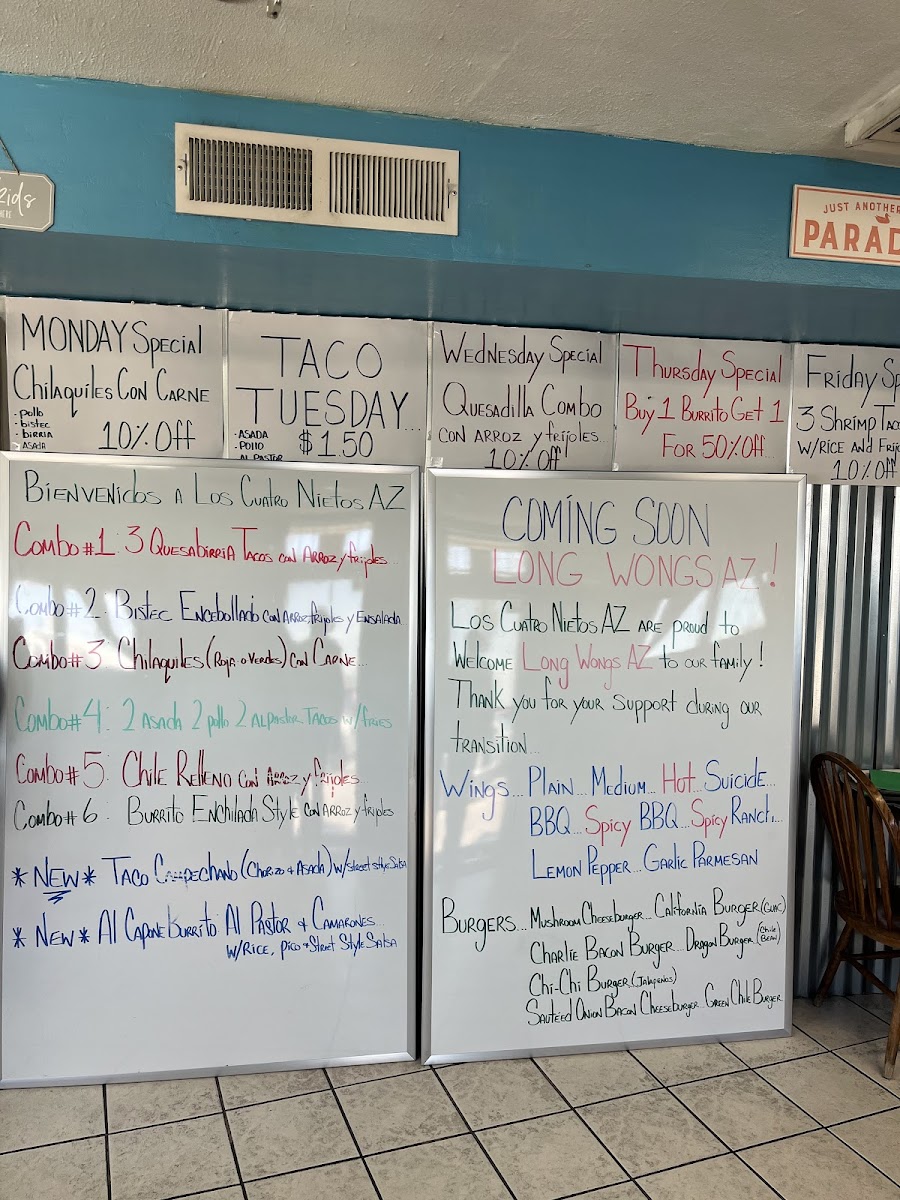 Kids
HERE
JUST ANOTHER
PARAD
MONDAY Special
Chilaquiles Con Carne
- pollo
- bistec
- birria
- ASADA
10% Off
TACO
TUESDAY...
- ASADA
- POLLO
AL PASTOR
$1.50
Wednesday Special
Quesadilla Combo
con arroz y frijoles...
10% Off
Thursday Special
Buy 1 Burrito Get 1
For 50% Off
Friday Sp
3 Shrimp Taco
w/Rice and Frijo
10% Off
Bienvenidos a Los Cuatro Nietos AZ
Combo #1: 3 Quesabirria Tacos con Arroz y frijoles...
Combo #2: Bistec Encebollado con Arroz, frijoles y Ensalada...
Combo #3 Chilaquiles (Roja o Verdes) con Carne...
Combo #4: 2 Asada 2 pollo 2 Al pastor Tacos w/fries
Combo #5: Chile Relleno con Arroz y frijoles...
Combo #6: Burrito Enchilada Style con Arroz y frijoles
*New* Taco Campechano (Chorizo & Asada) w/street style Salsa
*New* Al Capone Burrito Al Pastor & Camarones...
w/Rice, Pico & Street Style Salsa
COMING SOON
LONG WONGS AZ!
Los Cuatro Nietos AZ are proud to
Welcome Long Wongs AZ to our family!
Thank you for your support during our
transition...
Wings... Plain... Medium... Hot... Suicide...
BBQ... Spicy BBQ... Spicy Ranch...
Lemon Pepper... Garlic Parmesan
Burgers... Mushroom Cheeseburger... California Burger (Guac)
Charlie Bacon Burger... Dragon Burger (Chile Bean)
Chi-Chi Burger (Jalapeños)
Sauteed Onion Bacon Cheeseburger Green Chile Burger